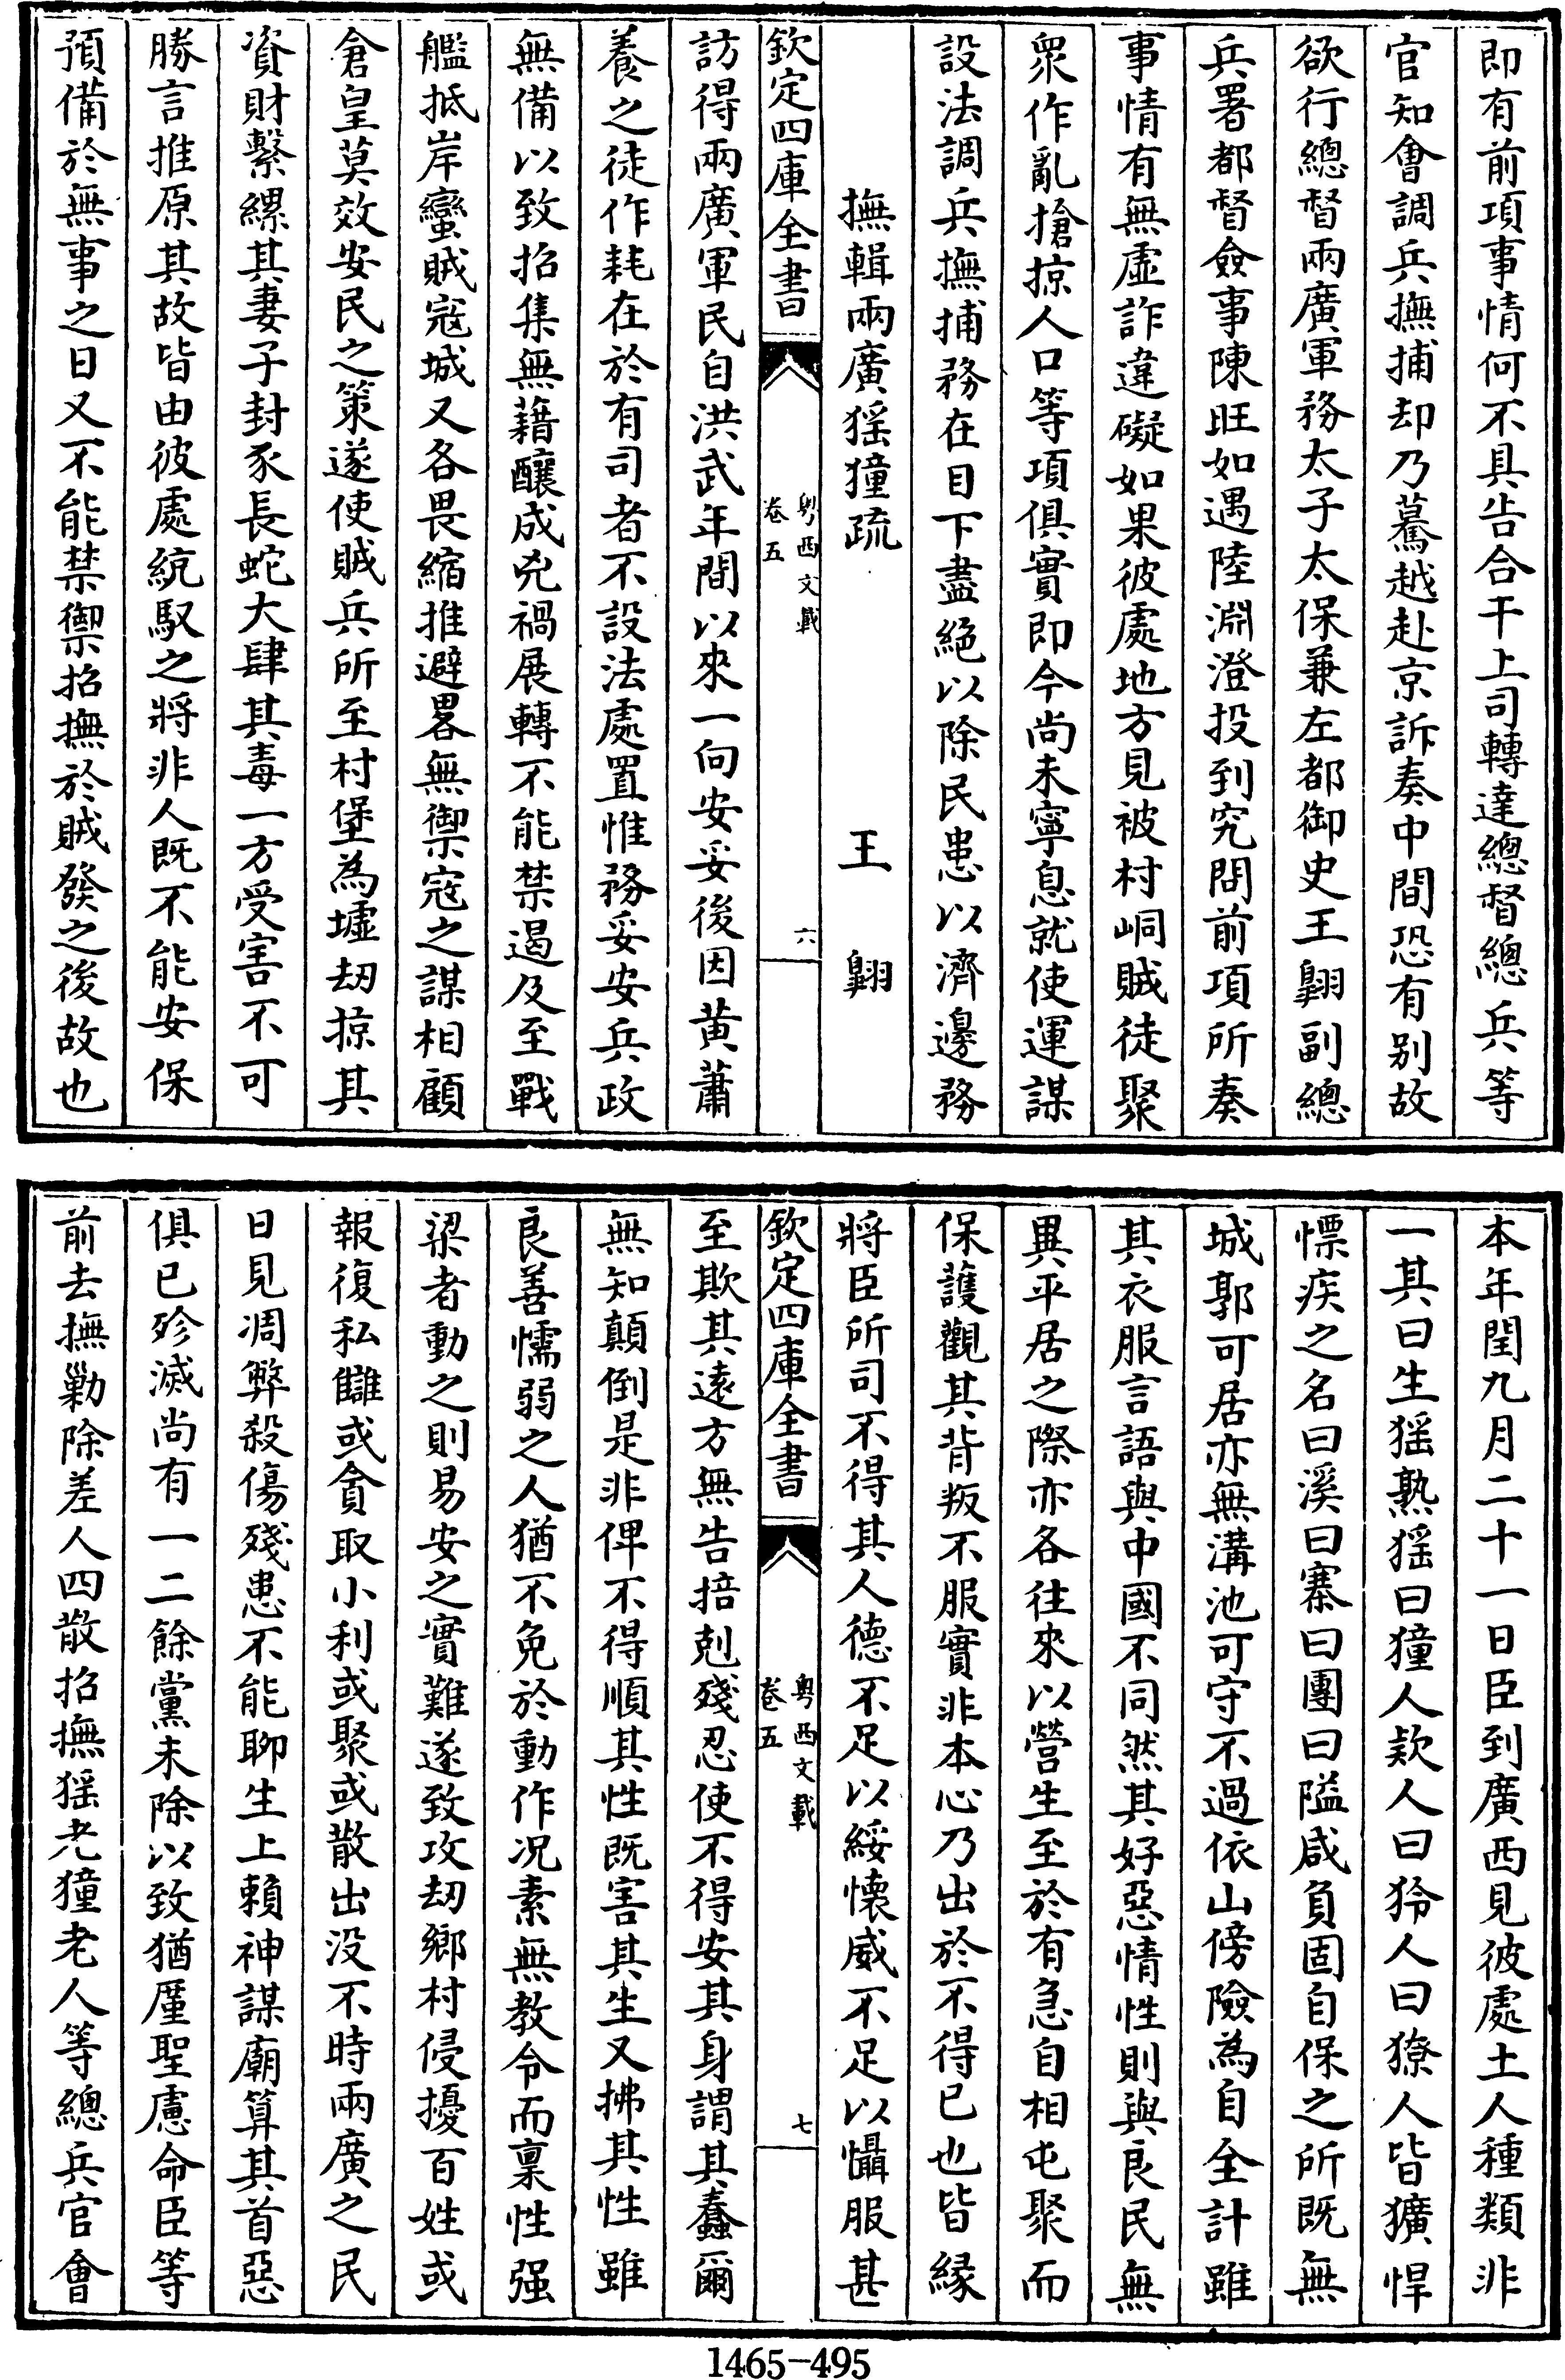 即有前項事情何不具告合干上司轉達總督總兵等
官知會調兵撫捕却乃驀越赴京訴奏中間恐有别故
欲行總督兩廣軍務太子太保兼左都御史王翺副總
兵署都督僉事陳旺如遇陸淵澄投到究問前項所奏
事情有無虛詐違礙如果彼處地方見被村峒賊徒聚
衆作亂搶掠人口等項俱實即今尚未寧息就使運謀
設法調兵撫捕務在目下盡絕以除民患以濟邊務
撫輯兩廣猺獞疏 王翺
欽定四庫全書 粤西文載 卷五 六
訪得兩廣軍民自洪武年間以來一向安妥後因黄蕭
養之徒作耗在於有司者不設法處置惟務妥安兵政
無備以致招集無藉釀成兇禍展轉不能禁遏及至戰
艦抵岸蠻賊寇城又各畏縮推避畧無禦寇之謀相顧
倉皇莫效安民之策遂使賊兵所至村堡為墟刼掠其
資財繫縲其妻子封豕長蛇大肆其毒一方受害不可
勝言推原其故皆由彼處統馭之將非人既不能安保
預備於無事之日又不能禁禦招撫於賊發之後故也
本年閏九月二十一日臣到廣西見彼處土人種類非
一其曰生猺熟猺曰獞人欵人曰狑人曰獠人皆獷悍
慓疾之名曰溪曰寨曰團曰隘咸負固自保之所既無
城郭可居亦無溝池可守不過依山傍險為自全計雖
其衣服言語與中國不同然其好惡情性則與良民無
異平居之際亦各往來以營生至於有急自相屯聚而
保護觀其背叛不服實非本心乃出於不得已也皆緣
將臣所司不得其人德不足以綏懷威不足以懾服甚
欽定四庫全書 粤西文載 卷五 七
至欺其遠方無告掊剋殘忍使不得安其身謂其蠢爾
無知顛倒是非俾不得順其性既害其生又拂其性雖
良善懦弱之人猶不免於動作况素無教令而稟性强
梁者動之則易安之實難遂致攻刼鄉村侵擾百姓或
報復私讎或貪取小利或聚或散出没不時兩廣之民
日見凋弊殺傷殘患不能聊生上賴神謀廟算其首惡
俱已殄滅尚有一二餘黨未除以致猶厪聖慮命臣等
前去撫勦除差人四散招撫猺老獞老人等總兵官會
1465-495